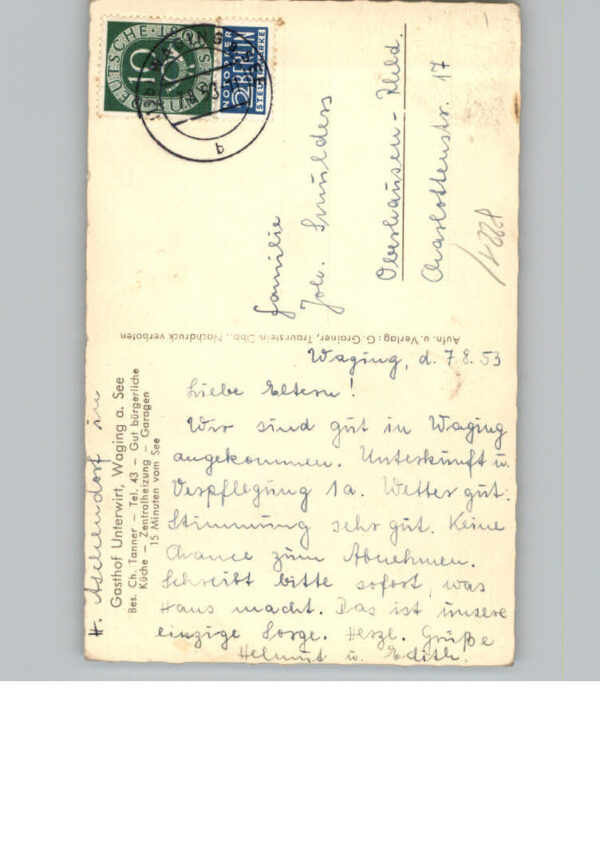 DEUTSCHE POST
10
NOTOPFER
2 BERLIN
STEUERMARKE
WAGING
b
Familie
Joh. Smulders
Oberhausen-Rhld.
Charlottenstr. 17
Aufn. u. Verlag: G. Grainer, Traunstein Obb., Nachdruck verboten
Gasthof Unterwirt, Waging a. See
Bes. Ch. Tanner – Tel. 43 – Gut bürgerliche
Küche – Zentralheizung – Garagen
15 Minuten vom See
Waging, d. 7.8.53
Liebe Eltern!
Wir sind gut in Waging
angekommen. Unterkunft u.
Verpflegung 1a. Wetter gut.
Stimmung sehr gut. Keine
Chance zum Abnehmen.
Schreibt bitte sofort, was
Hans macht. Das ist unsere
einzige Sorge. Herzl. Grüße
Helmut u. Edith.